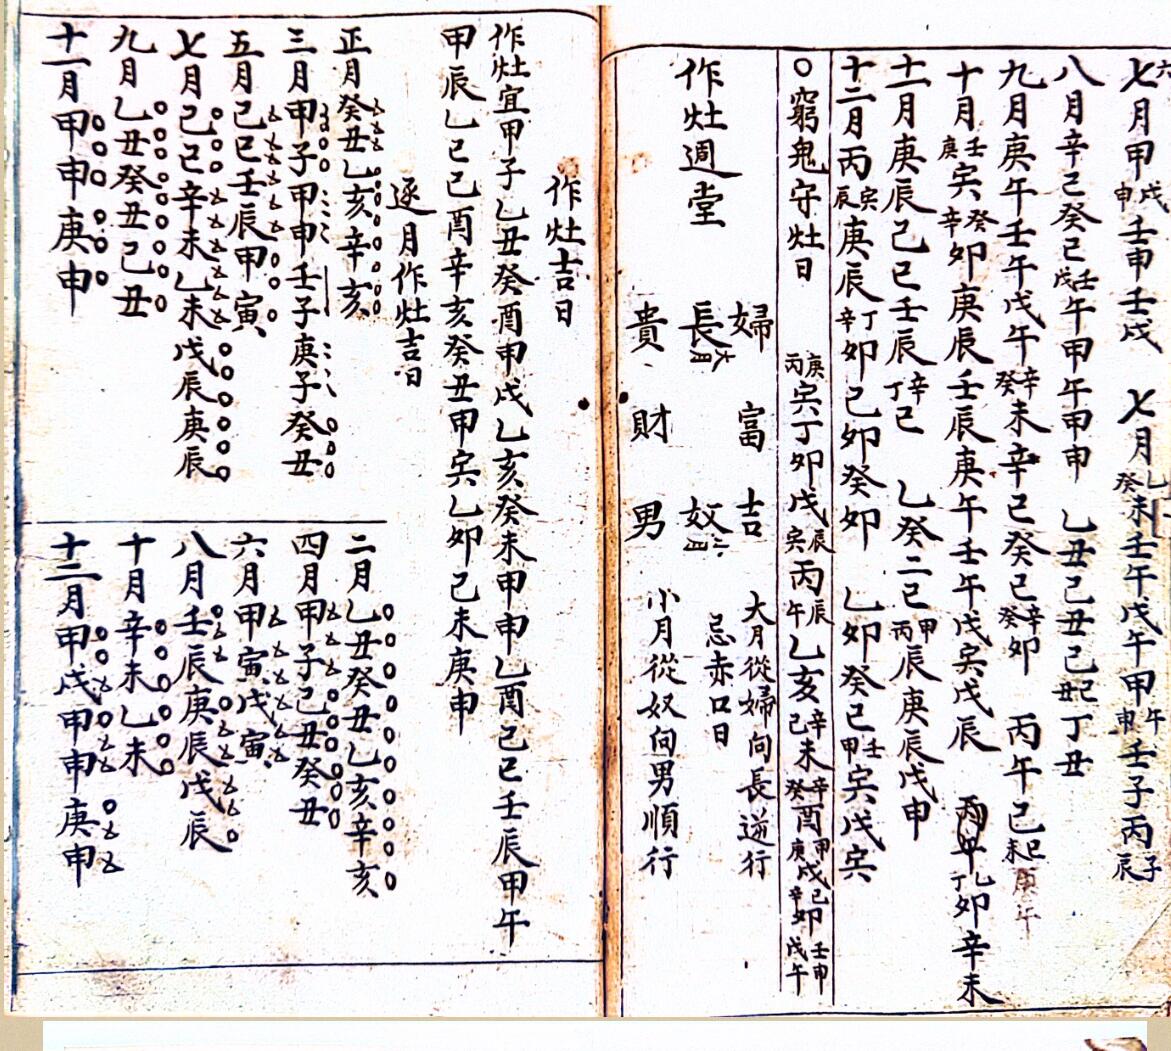 六
七月甲戌申壬申壬戌 七月乙癸未壬午戊午甲午申壬子丙子辰
八月辛己癸己壬戊午甲午甲申 乙丑己丑己丁丑
九月庚午壬午戊午辛癸未辛己癸己辛癸卯 丙午己己未庚午
十月壬庚寅癸辛卯庚辰壬辰庚午壬午戊寅戊辰 乙丁卯辛未
十一月庚辰己巳壬辰辛丁己 乙癸二己甲丙辰庚辰戊申
十二月丙寅辰庚辰丁辛卯己卯癸卯 乙卯癸己壬甲寅戊寅
○窮鬼守灶日 庚丙寅丁卯戊辰寅丙辰午乙亥辛己未辛癸酉甲庚戌己辛卯壬申戊午
作灶週堂
婦 富 吉 大月從婦向長逆行
長大月 奴小月 忌赤口日
貴 財 男 小月從奴向男順行
作灶吉日
作灶宜甲子乙丑癸酉甲戌乙亥癸未甲申乙酉己巳壬辰甲午
甲辰乙己己酉辛亥癸丑甲寅乙卯己未庚申
逐月作灶吉日
正月癸丑乙亥辛亥
二月乙丑癸丑乙亥辛亥
三月甲子甲申壬子庚子癸丑
四月甲子己丑癸丑
五月己巳壬辰甲寅
六月甲寅戊寅
七月己己辛未乙未戊辰庚辰
八月壬辰庚辰戊辰
九月乙丑癸丑己丑
十月辛未乙未
十一月甲申庚申
十二月甲戌甲申庚申